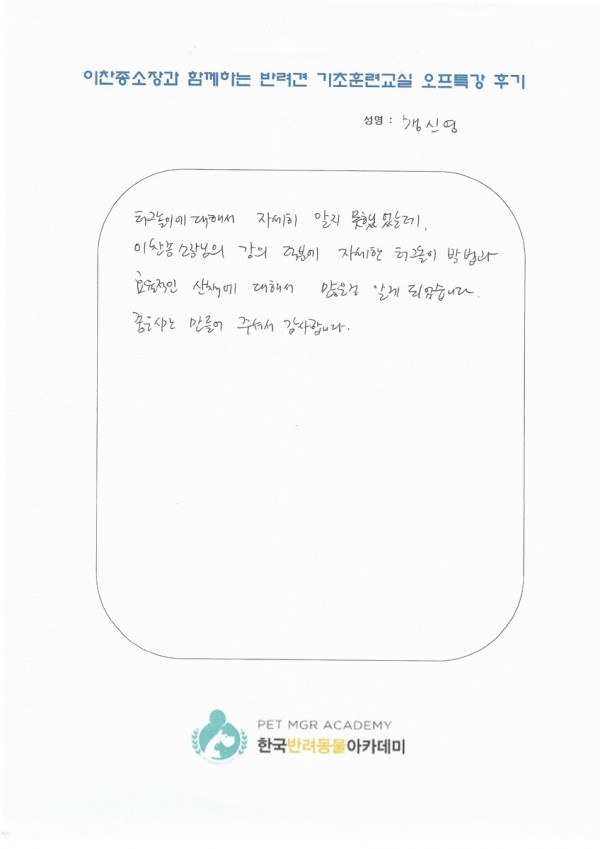 이찬종소장과 함께하는 반려견 기초훈련교실 오프특강 후기
성명 : 신영
터그놀이에 대해서 자세히 알지 못했었는데,
이찬종 소장님의 강의 덕분에 자세한 터그놀이 방법과
효율적인 산책에 대해서 많은걸 알게 되었습니다.
만들어 주셔서 감사합니다.
PET MGR ACADEMY
한국반려동물아카데미